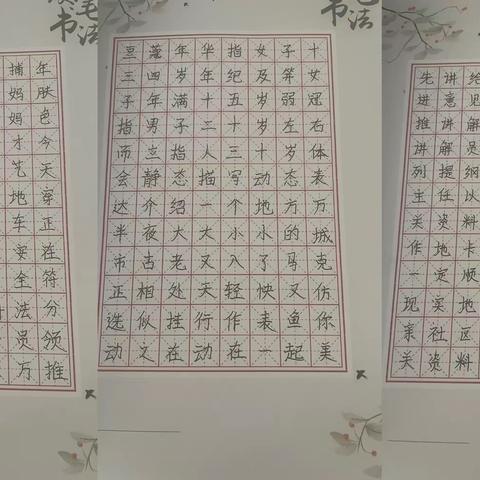 笔
书法
捕年
妈肤
妈色
才今
艺天
地穿
车正
安在
全符
法分
员颁
万推
豆蔻年华指女子十
三四岁年纪及笄女
子年满十五岁弱冠
指男子二十岁左右
而立指人三十岁体
会静态描写动态表
达介绍一个地方万
半夜大大小小的城
市古老又入了马克
正相处天轻快又仿
选似挂行作表鱼你
动之在动在一起美
书法
先讲给
进意见
推讲解
讲解员
列提纲
主任以
关资料
作地卡
一定顺
现实地
亲社区
关资料